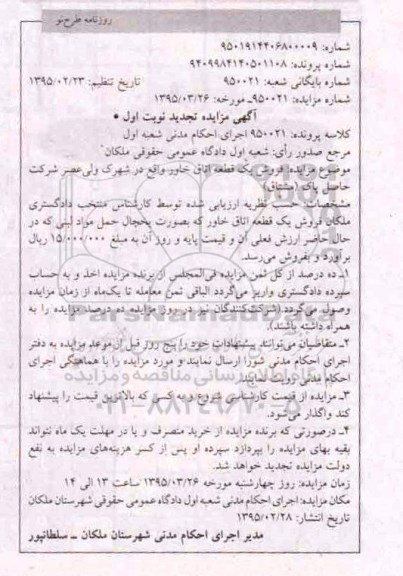 روزنامه طرح‌نو
شماره: ۹۵۰۱۹۱۴۴۰۶۸۰۰۰۰۹
شماره پرونده: ۹۴۰۹۹۸۴۱۴۰۵۰۱۱۰۸
شماره بایگانی شعبه: ۹۵۰۰۲۱ تاریخ تنظیم: ۱۳۹۵/۰۲/۲۳
شماره مزایده: ۹۵۰۰۲۱ـ مورخه: ۱۳۹۵/۰۳/۲۶
آگهی مزایده تجدید نوبت اول •
کلاسه پرونده: ۹۵۰۰۲۱ اجرای احکام مدنی شعبه اول
مرجع صدور رأی: شعبه اول دادگاه عمومی حقوقی ملکان
موضوع مزایده: فروش یک قطعه اتاق خاور واقع در شهرک ولی‌عصر شرکت
حاصل پاک (مشتاق)
مشخصات: حسب نظریه ارزیابی شده توسط کارشناس منتخب دادگستری
ملکان فروش یک قطعه اتاق خاور که بصورت یخچال حمل مواد لبنی که در
حال حاضر ارزش فعلی آن و قیمت پایه و روز آن به مبلغ ۱۵/۰۰۰/۰۰۰ ریال
برآورد و بفروش می‌رسد.
۱ـ ده درصد از کل ثمن مزایده فی‌المجلس از برنده مزایده اخذ و به حساب
سپرده دادگستری واریز می‌گردد الباقی ثمن معامله تا یک‌ماه از زمان مزایده
وصول می‌گردد (شرکت‌کنندگان نیز در روز مزایده ده درصد مزایده را به
همراه داشته باشند).
۲ـ متقاضیان می‌توانند پیشنهادات خود را پنج روز قبل از موعد مزایده به دفتر
اجرای احکام مدنی شورا ارسال نمایند و مورد مزایده را با هماهنگی اجرای
احکام مدنی رویت نمایند.
۳ـ مزایده از قیمت کارشناسی شروع و به کسی که بالاترین قیمت را پیشنهاد
کند واگذار می‌شود.
۴ـ درصورتی که برنده مزایده از خرید منصرف و یا در مهلت یک ماه نتواند
بقیه بهای مزایده را بپردازد سپرده او پس از کسر هزینه‌های مزایده به نفع
دولت مزایده تجدید خواهد شد.
زمان مزایده: روز چهارشنبه مورخه ۱۳۹۵/۰۳/۲۶ ساعت ۱۳ الی ۱۴
مکان مزایده: اجرای احکام مدنی شعبه اول دادگاه عمومی حقوقی شهرستان ملکان
تاریخ انتشار: ۱۳۹۵/۰۲/۲۸
مدیر اجرای احکام مدنی شهرستان ملکان ـ سلطانپور